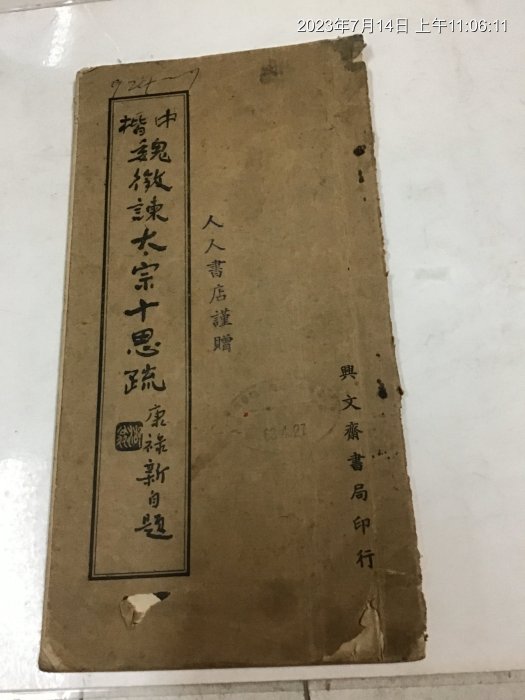 2023年7月14日 上午11:06:11
中楷
魏徵諫太宗十思疏
康祿新自題
人人書店謹贈
興文齋書局印行